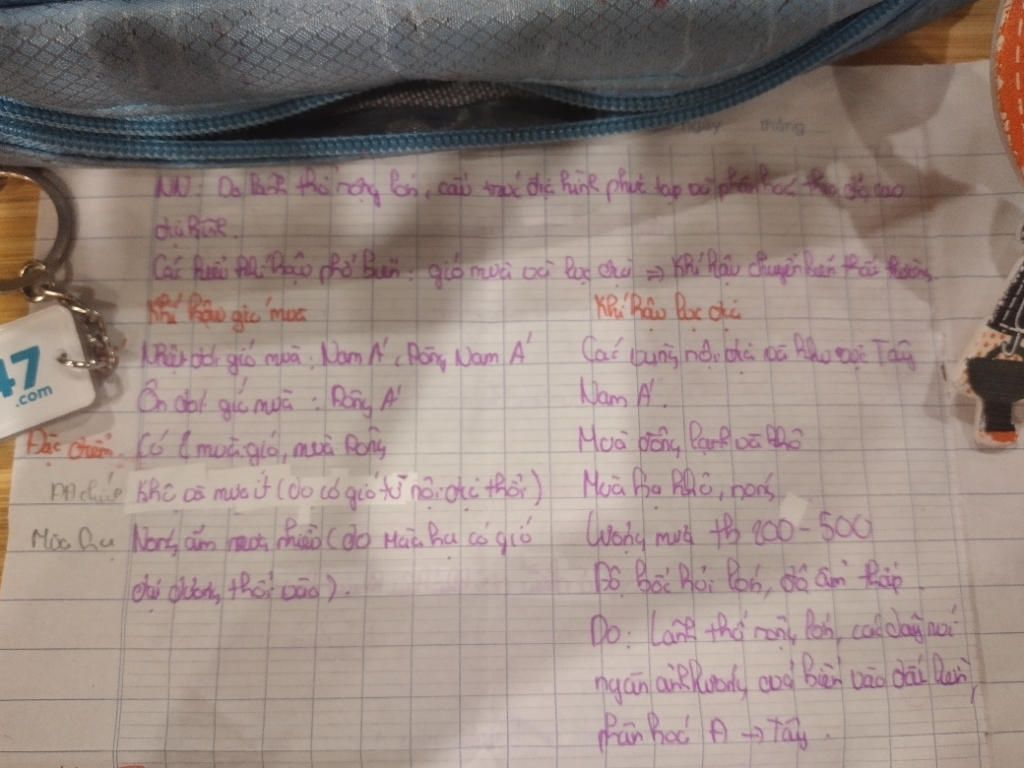 ngày tháng
NN: Do lãnh thổ rộng lớn, cấu trúc địa hình phức tạp và phân hoá theo độ cao
địa hình.
Các kiểu khí hậu phổ biến: gió mùa và lục địa => Khí hậu chuyển biến thất thường
Khí hậu gió mùa
Khí hậu lục địa
Nhiệt đới gió mùa: Nam Á, Đông Nam Á
Các vùng nội địa và khu vực Tây
Ôn đới gió mùa: Đông Á
Nam Á.
Đặc điểm
Có 2 mùa gió, mùa đông
Mùa đông lạnh và khô
Khô và mưa ít (do có gió từ nội địa thổi)
Mùa hạ khô, nóng
Mùa hạ
Nóng ẩm mưa nhiều (do mùa hạ có gió
Lượng mưa tb 200 - 500
đại dương thổi vào).
Độ bốc hơi lớn, độ ẩm thấp.
Do: Lãnh thổ rộng lớn, các dãy núi
ngăn ảnh hưởng của biển vào đất liền,
phân hoá Đ -> Tây.
47
.com